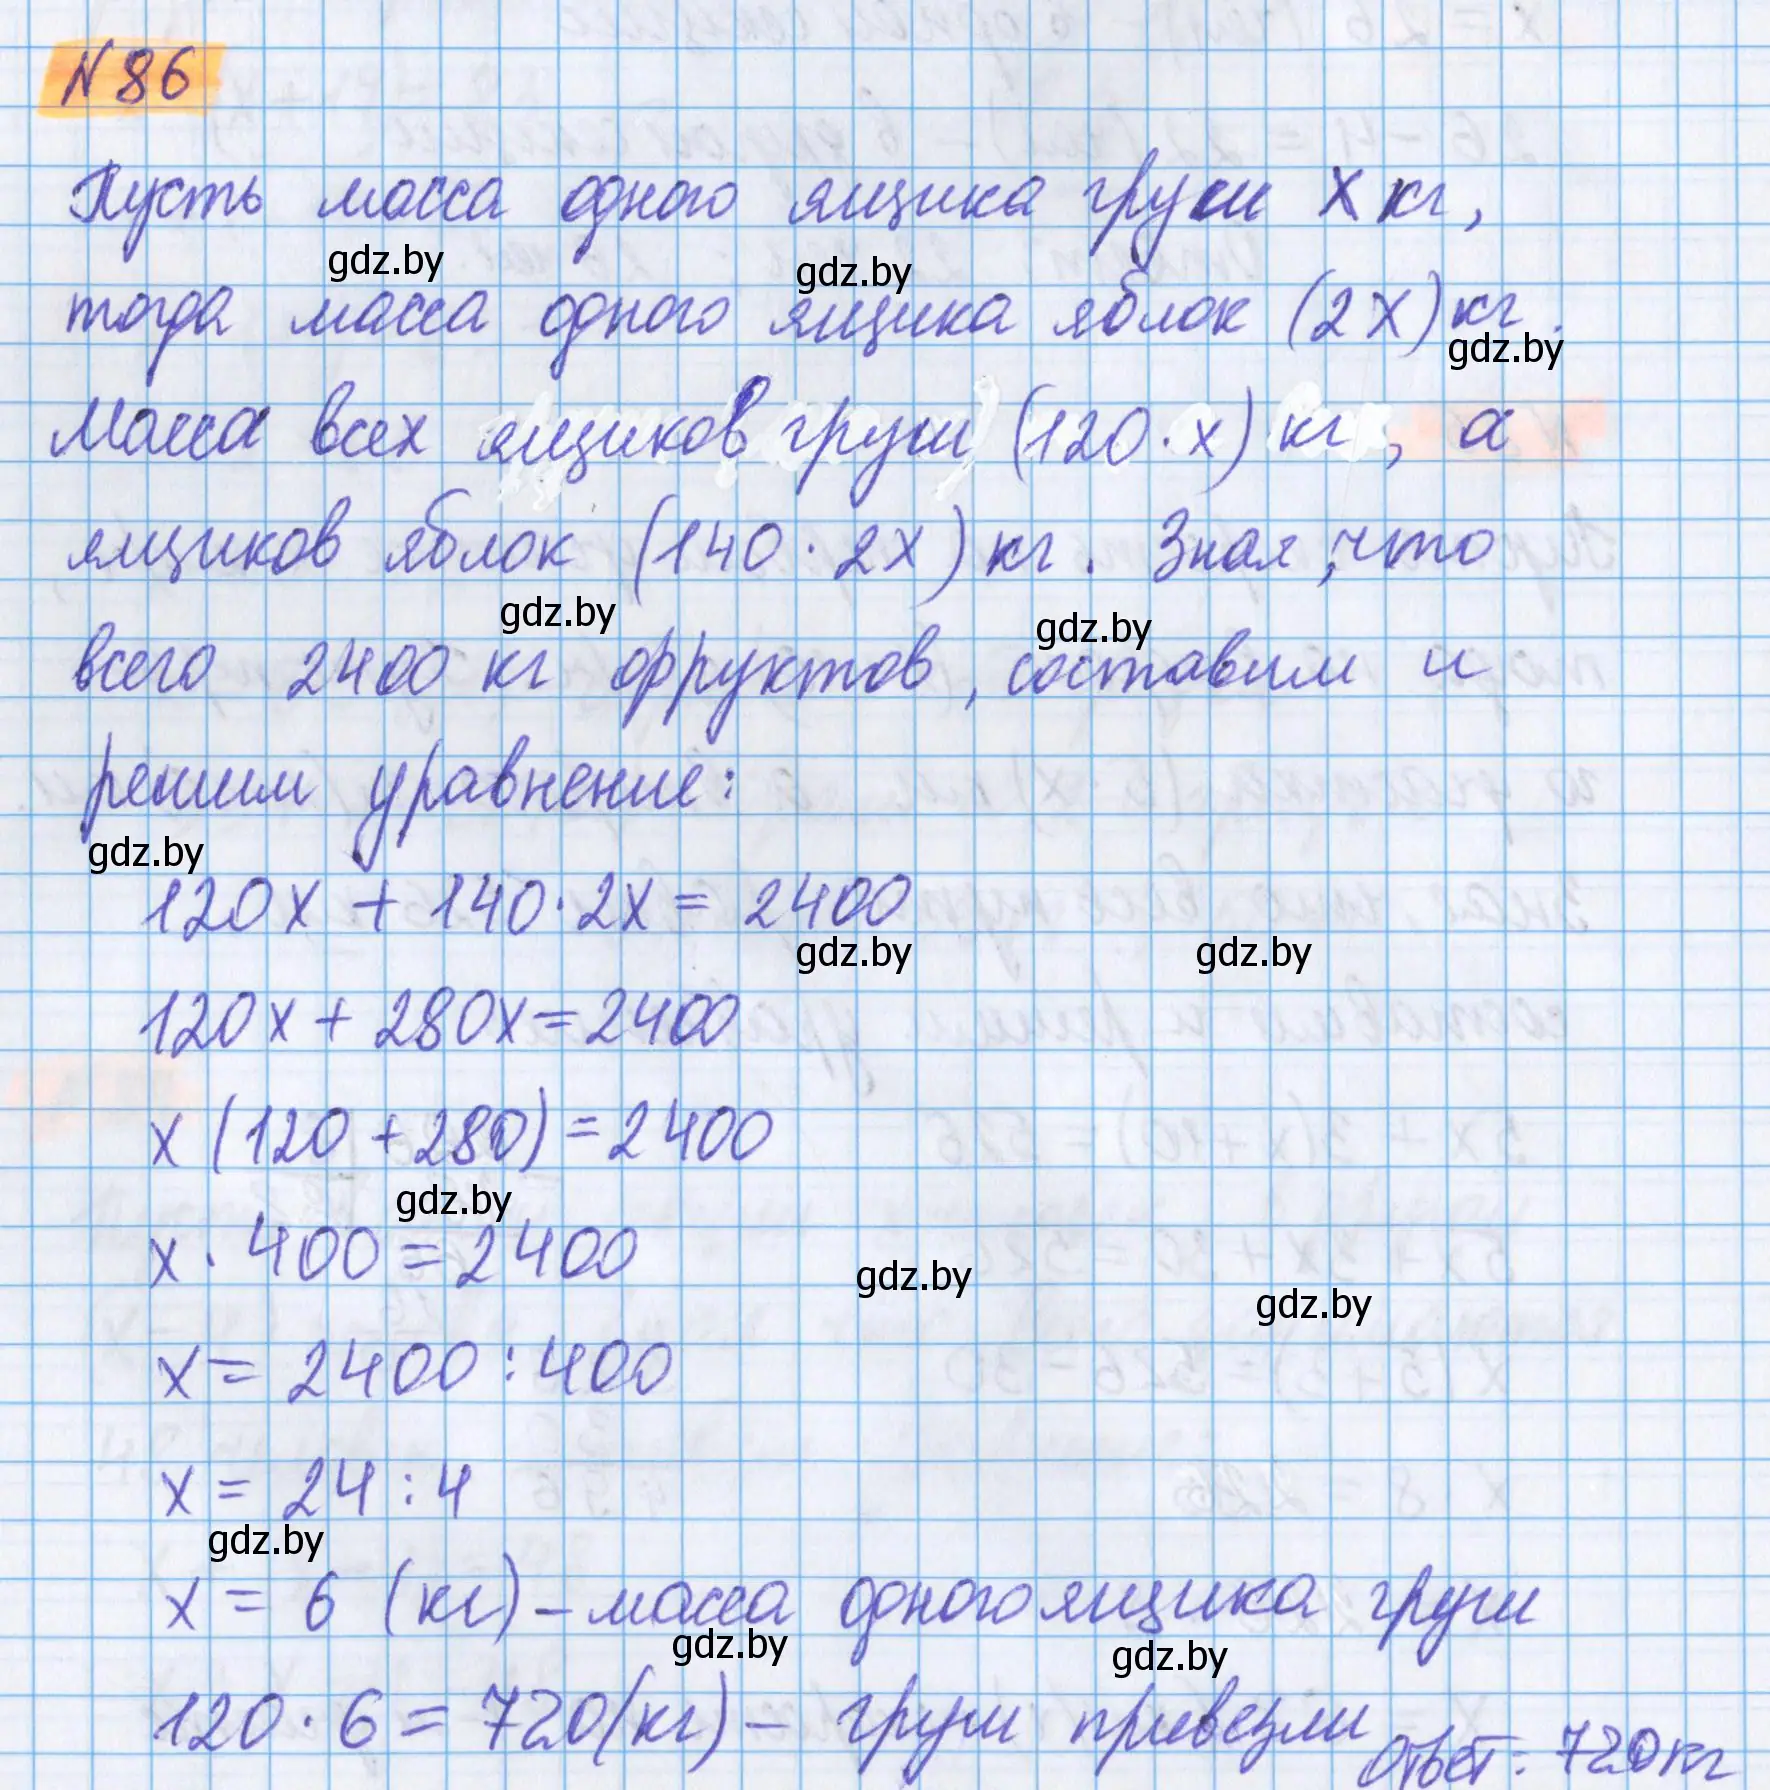 N 86
Пусть масса одного ящика груш x кг,
gdz.by gdz.by
тогда масса одного ящика яблок (2x) кг.
gdz.by
Масса всех ящиков груш (120 · x) кг, а
ящиков яблок (140 · 2x) кг. Зная, что
gdz.by gdz.by
всего 2400 кг фруктов, составим и
решим уравнение:
gdz.by
120x + 140 · 2x = 2400
gdz.by gdz.by
120x + 280x = 2400
x (120 + 280) = 2400
gdz.by
x · 400 = 2400
gdz.by gdz.by
x = 2400 : 400
x = 24 : 4
gdz.by
x = 6 (кг) – масса одного ящика груш
gdz.by gdz.by
120 · 6 = 720 (кг) – груш привезли
Ответ: 720 кг